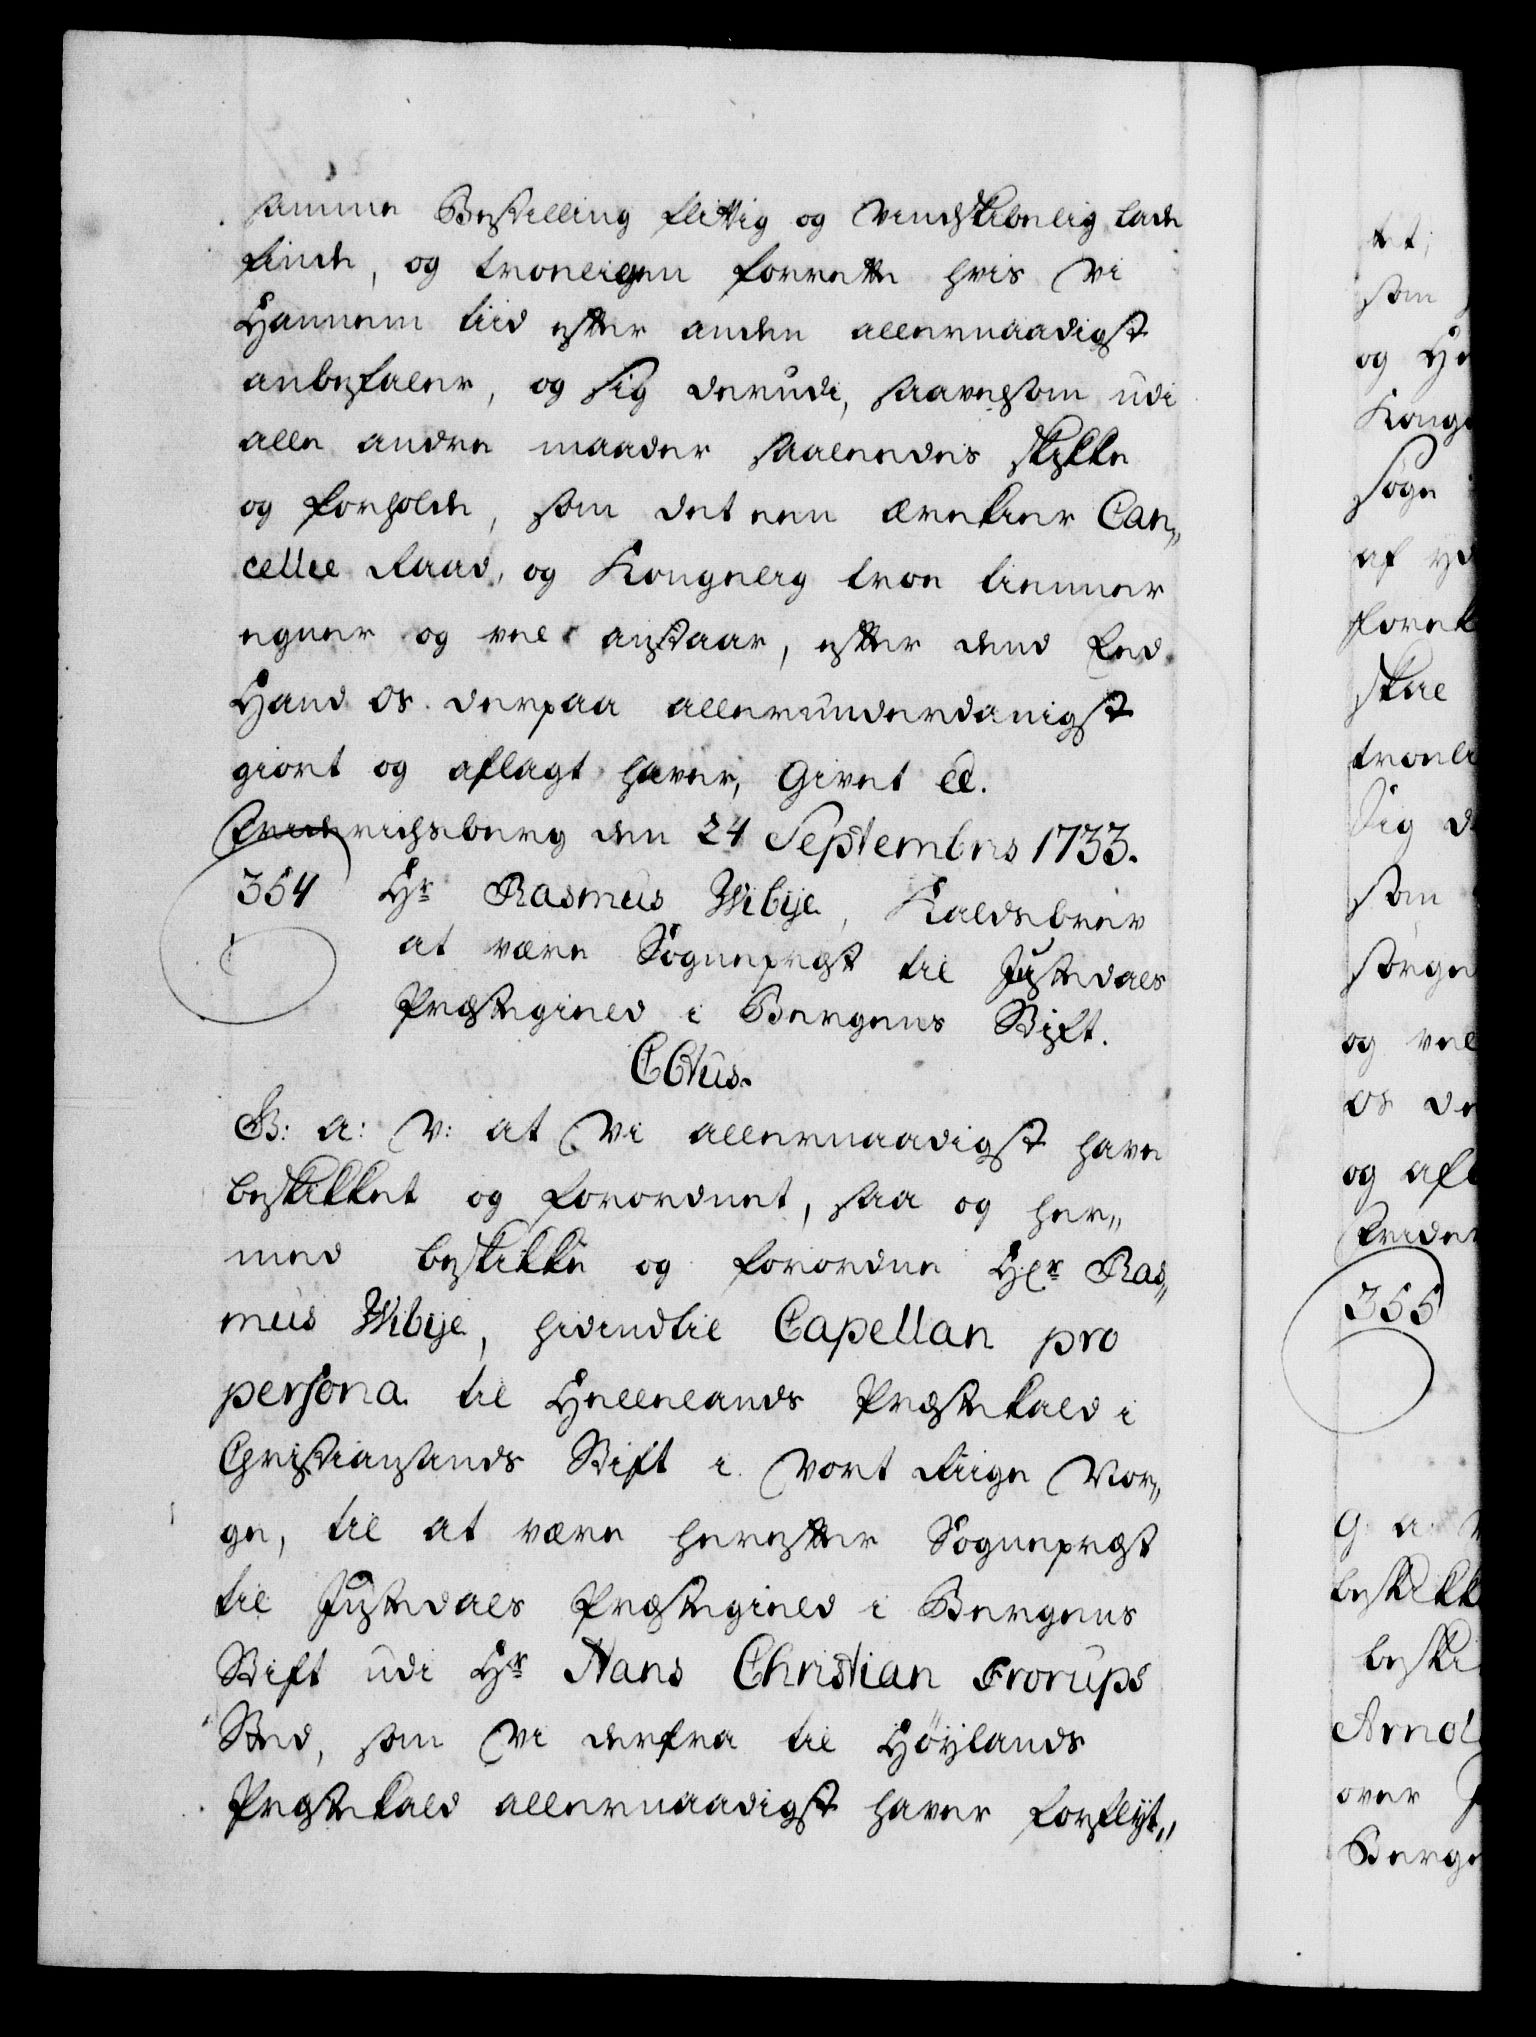 samme Bestilling flittig og vindskibelig lade
finde, og troeligen forrette hvis Vi
Hannem tiid efter anden allernaadigst
anbefaler, og sig derudi, saavelsom udi
alle andre maader saaledes skikke
og forholde, som det een ærekier Can„
cellie Raad, og Kongelig troe tienner
egner og vel anstaar, efter dend Eed
Hand os derpaa allerunderdanigst
giort og aflagt haver, Givet &c.
Friderichsberg den 24 Septembris 1733.
354 Hr Rasmus Wibye, Kaldsbrev
at være Sognepræst til Justedals
Præstegield i Bergens Stift.
CCtus.
G: a: V: at Vi allernaadigst have
beskikket og forordnet, saa og her„
med beskikke og forordne Hr Ras„
mus Wibye, hidindtil Capellan pro
persona til Hellelands Præstekald i
Christiansands Stift i Vort Riige Nor„
ge, til at være herefter Sognepræst
til Justedals Præstegield i Bergens
Stift udi Hr Hans Christian Frorups
Sted, som Vi derfra til Høylands
Præstekald allernaadigst haver forflÿt„
tet;
som
og He
Konge
søge
af yd
foret
skal
troeli
Sig d
som
sørge
og vel
os de
og afl
Frider
355
G: a: V
beskikk
beski
Arnol
over
Berge